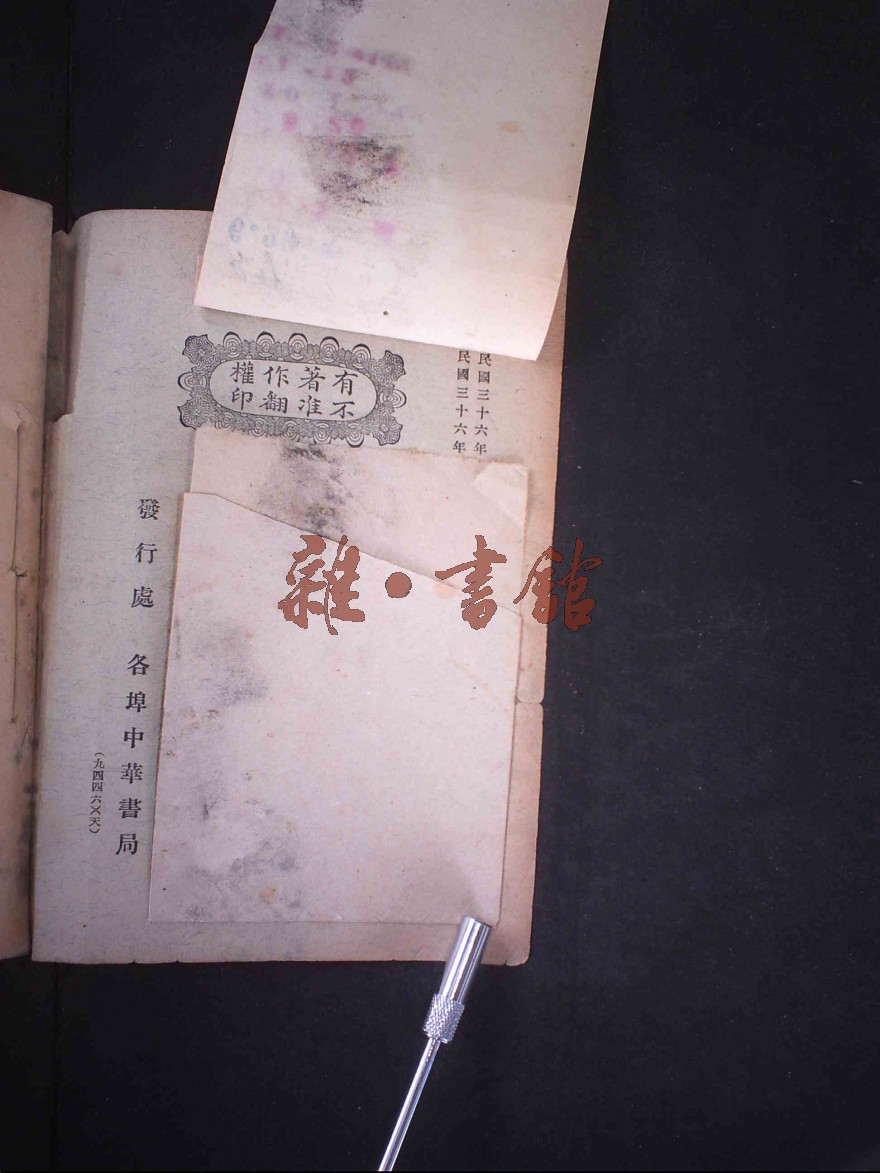 民國三十六年
民國三十六年
有著作權
不准翻印
發行處 各埠中華書局
(九四四六)(天)
雜·書館